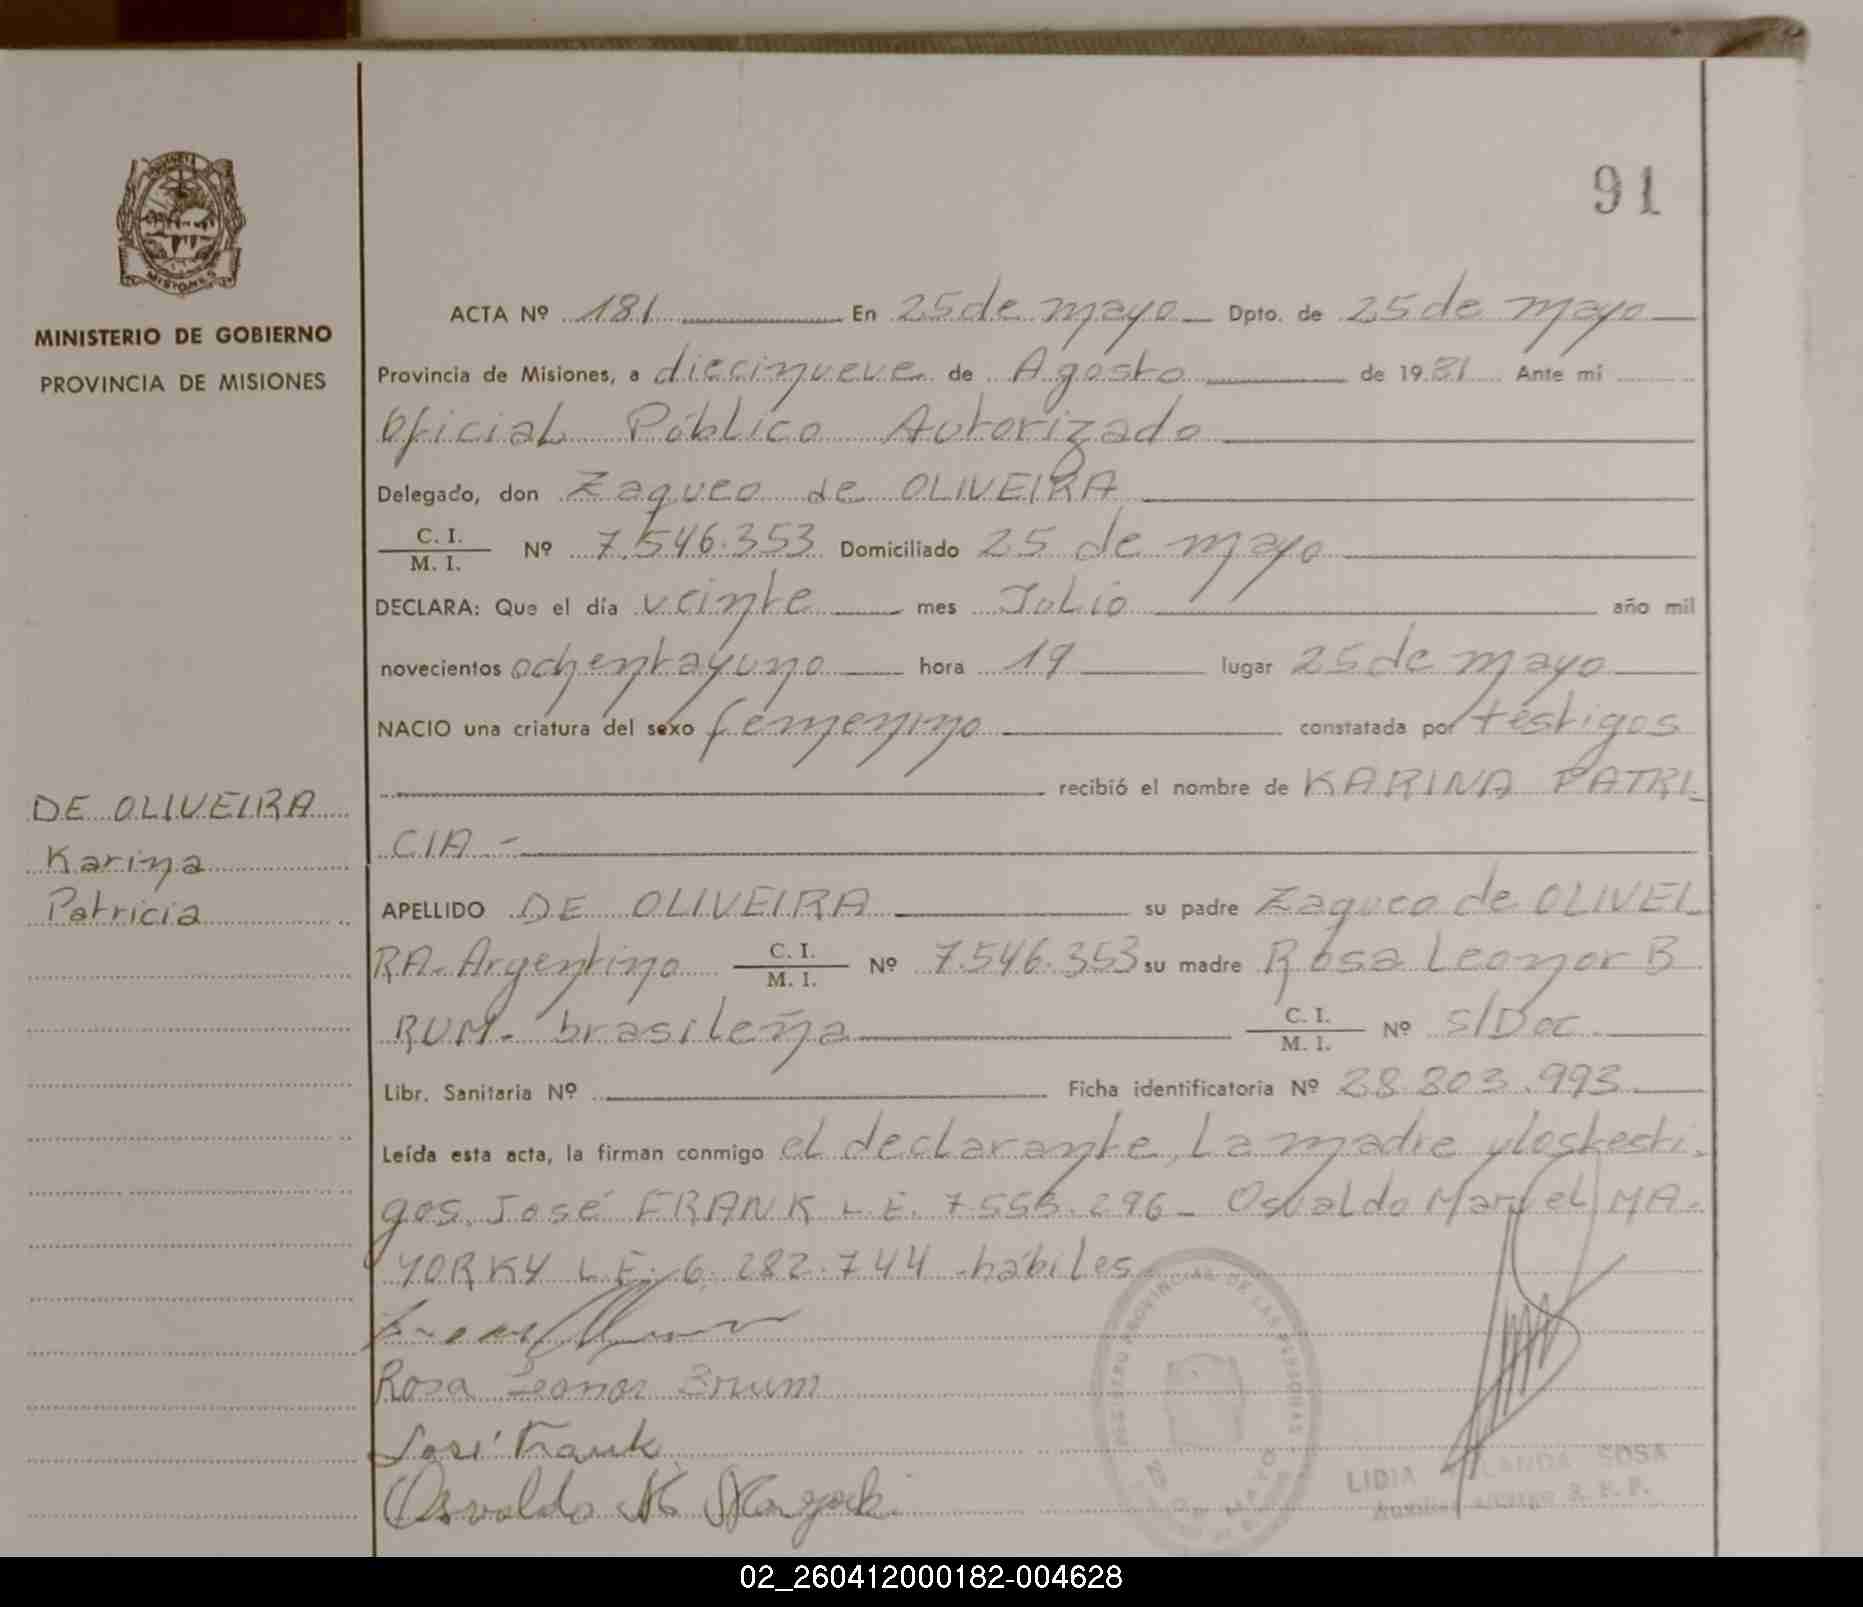 91
MINISTERIO DE GOBIERNO
PROVINCIA DE MISIONES
MISIONES
ACTA Nº 181 En 25 de mayo Dpto. de 25 de mayo
Provincia de Misiones, a diecinueve de Agosto de 1981 Ante mí
Oficial Público Autorizado
Delegado, don Zaqueo de OLIVEIRA
C. I.
M. I. Nº 7.546.353 Domiciliado 25 de mayo
DECLARA: Que el día veinte mes Julio año mil
novecientos ochentayuno hora 19 lugar 25 de mayo
NACIO una criatura del sexo femenino constatada por testigos
recibió el nombre de KARINA PATRI
CIA -
DE OLIVEIRA
Karina
Patricia
APELLIDO DE OLIVEIRA su padre Zaqueo de OLIVEI
RA- Argentino C. I. M. I. Nº 7.546.353 su madre Rosa Leonor B
RUM- brasileña C. I. M. I. Nº S/Doc
Libr. Sanitaria Nº Ficha identificatoria Nº 28.803.993
Leída esta acta, la firman conmigo el declarante, La madre y los testi-
gos, José FRANK L.E. 7.553.296 - Osvaldo Manuel MA-
YORKY L.E. 6.282.744 - hábiles
Rosa Leonor Brum
José Frank
Osvaldo M. Mayorki
REGISTRO PROVINCIAL DE LAS PERSONAS
25 DE MAYO
LIDIA YOLANDA SOSA
02_260412000182-004628